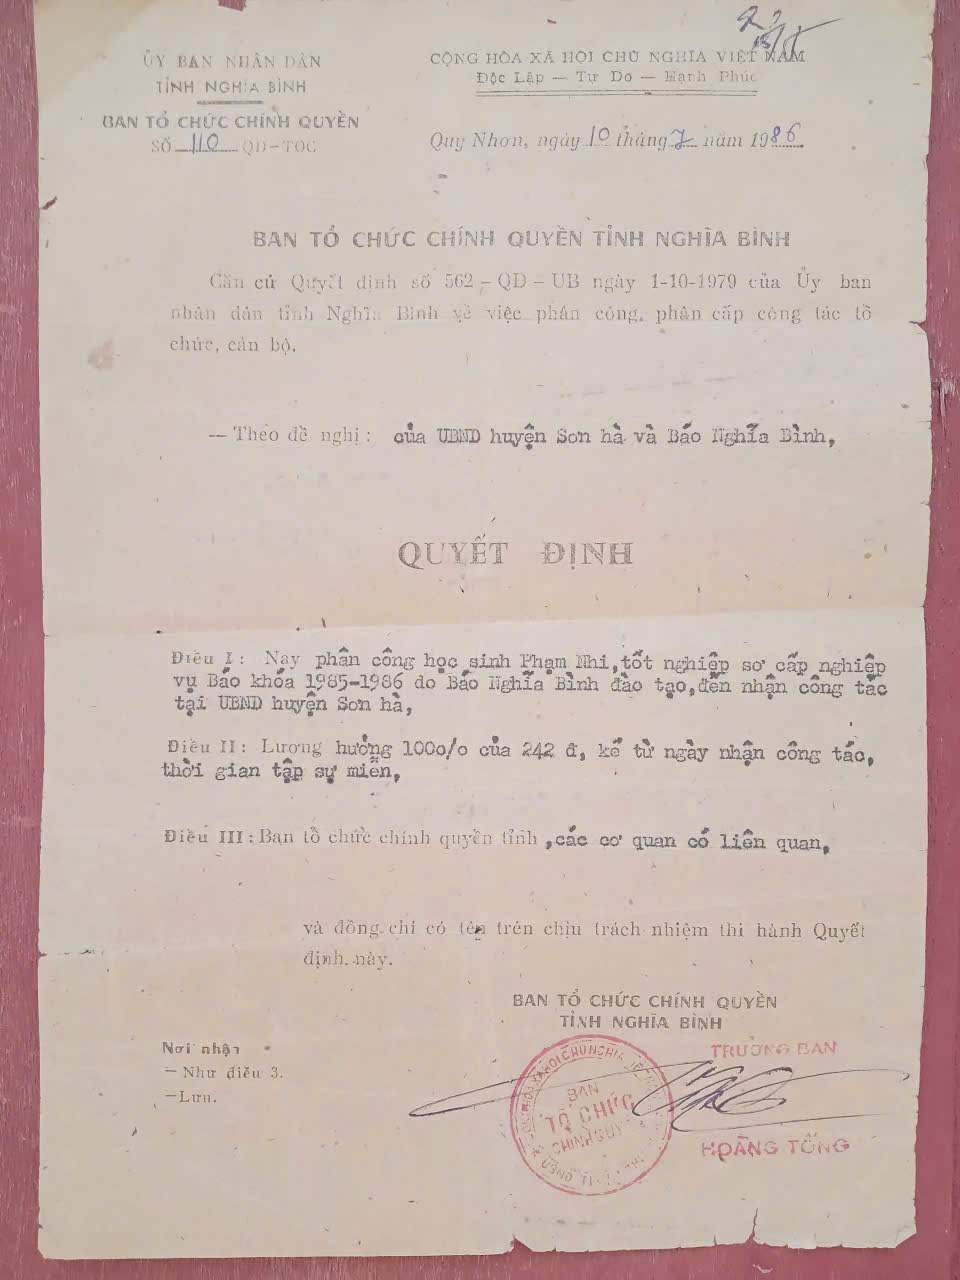 ỦY BAN NHÂN DÂN
TỈNH NGHĨA BÌNH
BAN TỔ CHỨC CHÍNH QUYỀN
SỐ 110 QĐ-TOC
CỘNG HÒA XÃ HỘI CHỦ NGHĨA VIỆT NAM
Độc Lập — Tự Do — Hạnh Phúc
Quy Nhơn, ngày 10 tháng 7 năm 1986
BAN TỔ CHỨC CHÍNH QUYỀN TỈNH NGHĨA BÌNH
Căn cứ Quyết định số 562 - QĐ - UB ngày 1-10-1979 của Ủy ban
nhân dân tỉnh Nghĩa Bình về việc phân công, phân cấp công tác tổ
chức, cán bộ.
— Theo đề nghị : của UBND huyện Sơn hà và Báo Nghĩa Bình,
QUYẾT ĐỊNH
Điều I : Nay phân công học sinh Phạm Nhi, tốt nghiệp sơ cấp nghiệp
vụ Báo khóa 1985-1986 do Báo Nghĩa Bình đào tạo, đến nhận công tác
tại UBND huyện Sơn hà,
Điều II : Lương hưởng 100o/o của 242 đ, kể từ ngày nhận công tác,
thời gian tập sự miễn,
Điều III : Ban tổ chức chính quyền tỉnh , các cơ quan có liên quan,
và đồng chí có tên trên chịu trách nhiệm thi hành Quyết
định này.
BAN TỔ CHỨC CHÍNH QUYỀN
TỈNH NGHĨA BÌNH
Nơi nhận
— Như điều 3.
— Lưu.
TRƯỞNG BAN
BAN
TỔ CHỨC
CHÍNH QUYỀN
HOÀNG TỐNG